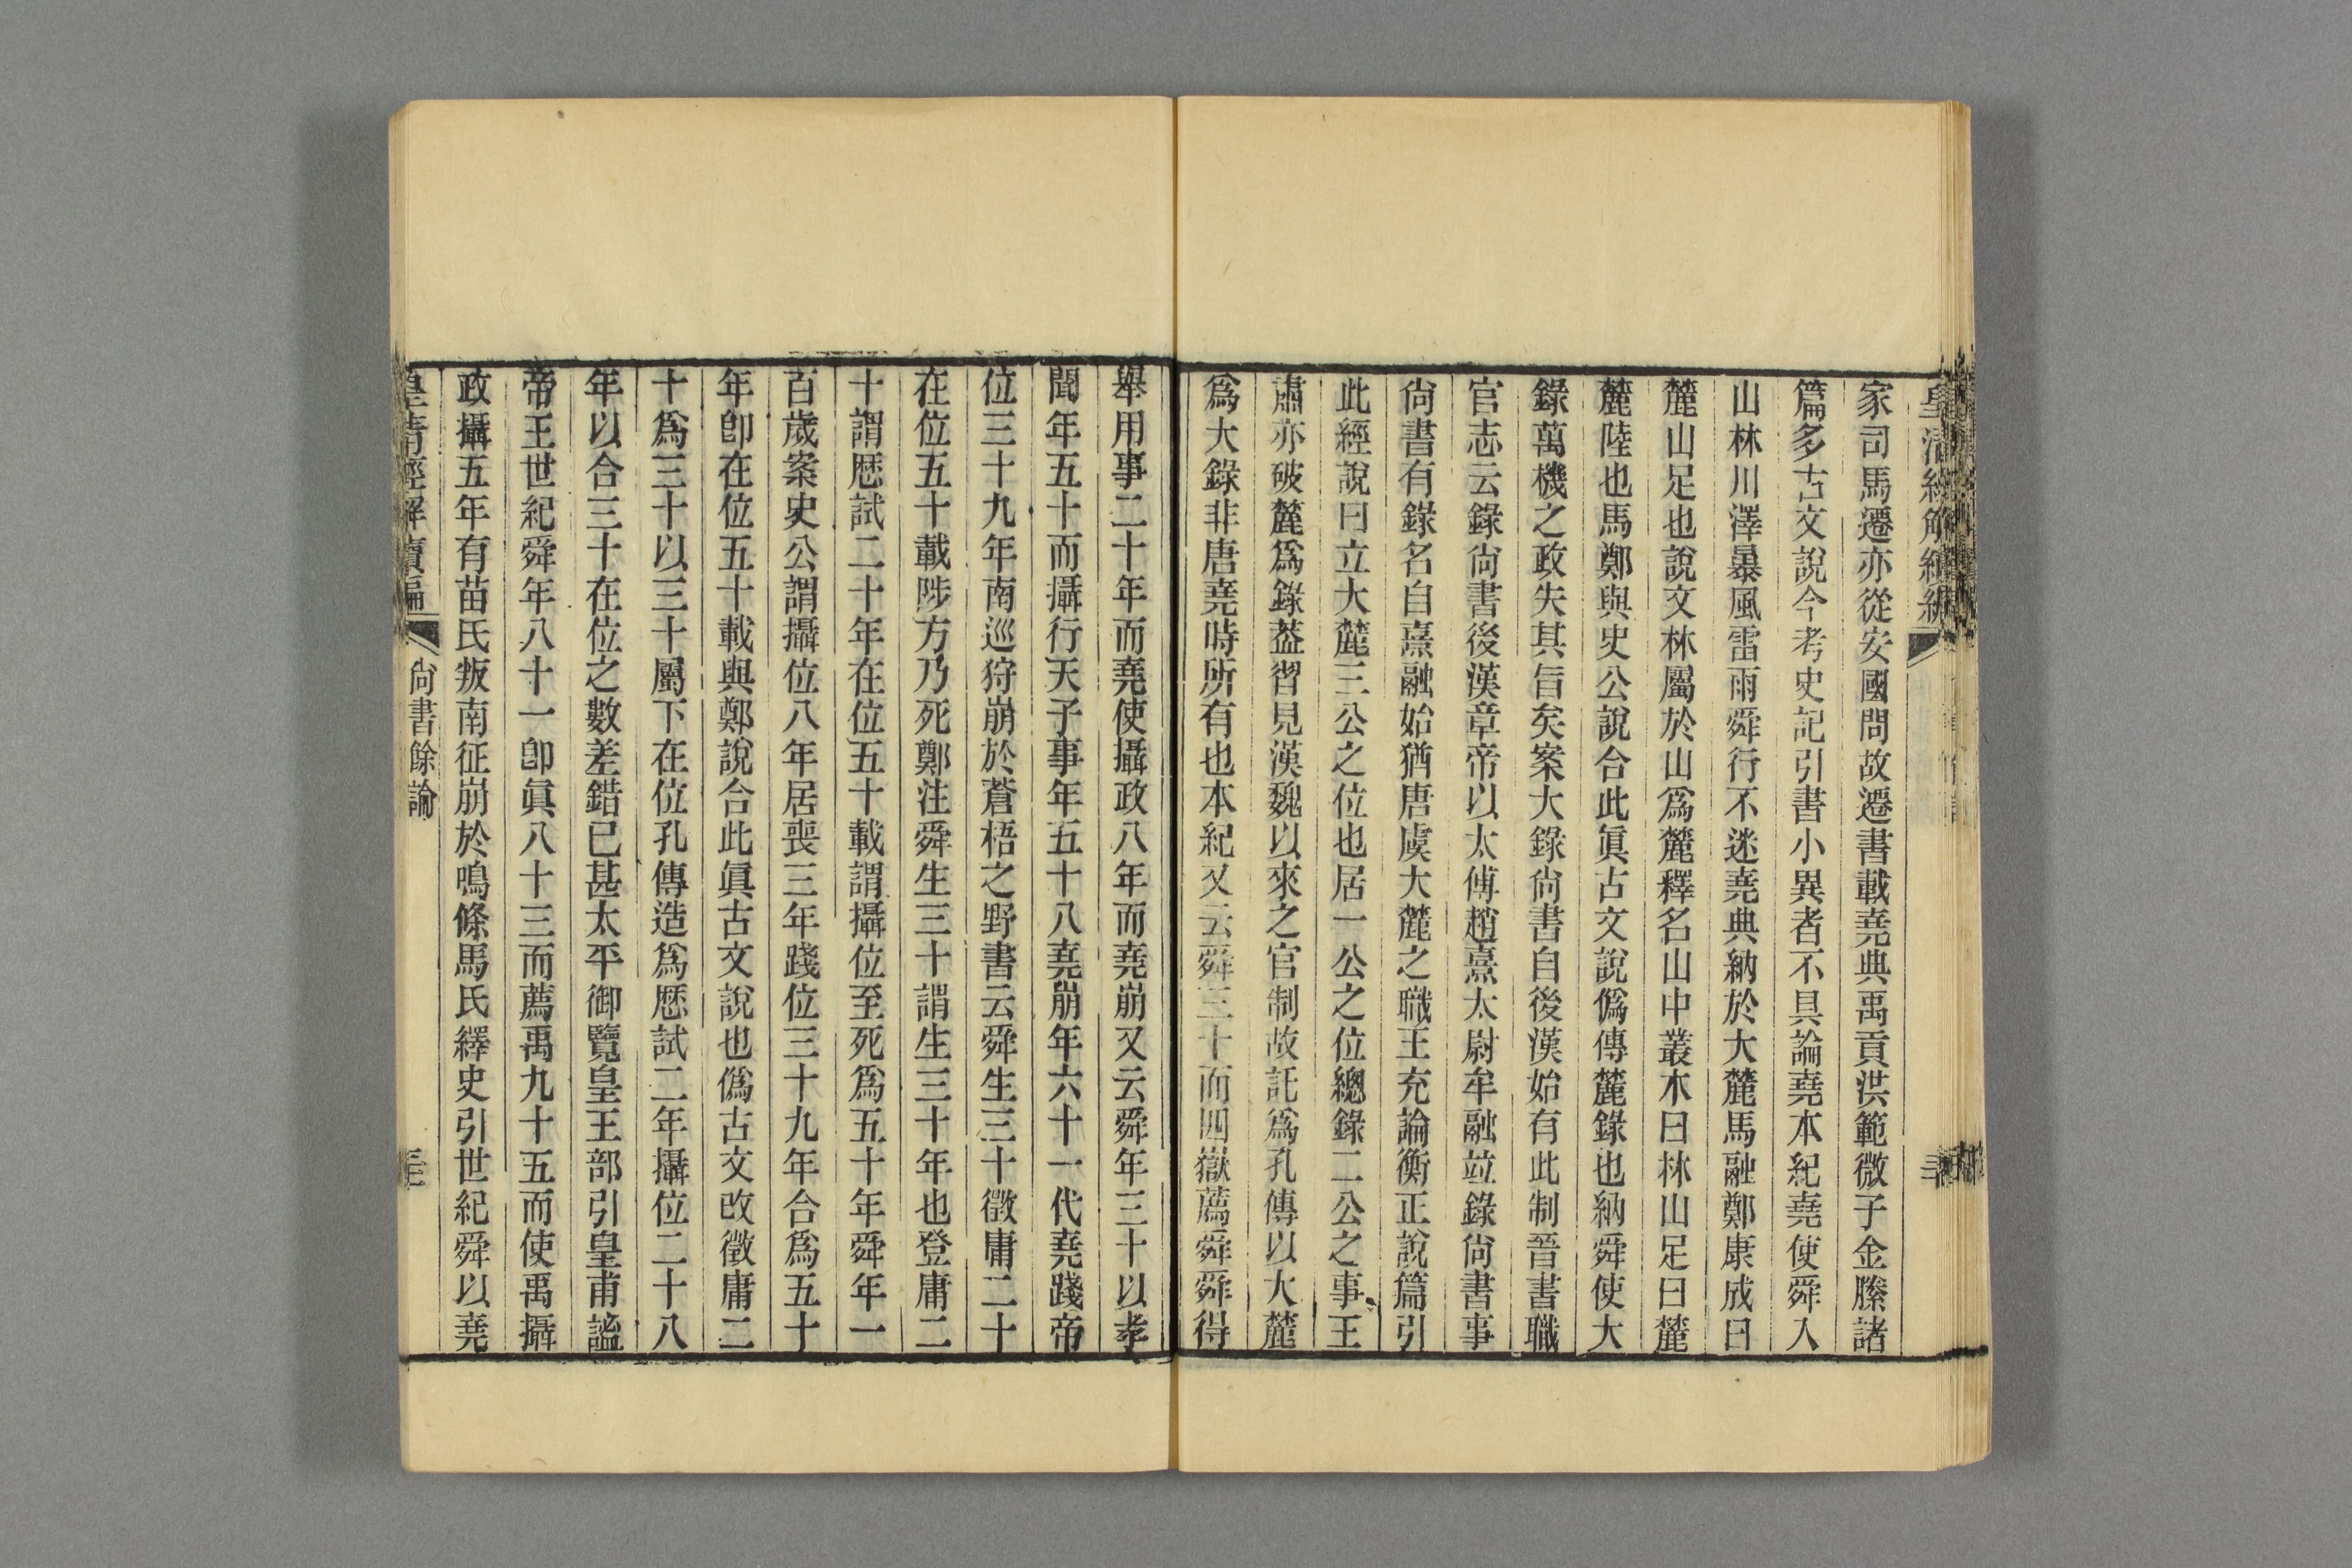 家司馬遷亦從安國問故遷書載堯典禹貢洪範微子金縢諸
篇多古文說今考史記引書小異者不具論堯本紀堯使舜入
山林川澤暴風雷雨舜行不迷堯典納於大麓馬融鄭康成曰
麓山足也說文林屬於山爲麓釋名山中叢木曰林山足曰麓
麓陸也馬鄭與史公說合此眞古文說僞傳麓錄也納舜使大
錄萬機之政失其旨矣案大錄尙書自後漢始有此制晉書職
官志云錄尙書後漢章帝以太傅趙熹太尉牟融竝錄尙書事
尙書有錄名自熹融始猶唐虞大麓之職王充論衡正說篇引
此經說曰立大麓三公之位也居一公之位總錄二公之事王
肅亦破麓爲錄葢習見漢魏以來之官制故託爲孔傳以大麓
爲大錄非唐堯時所有也本紀又云舜三十而四嶽薦舜舜得
舉用事二十年而堯使攝政八年而堯崩又云舜年三十以孝
聞年五十而攝行天子事年五十八堯崩年六十一代堯踐帝
位三十九年南巡狩崩於蒼梧之野書云舜生三十徵庸二十
在位五十載陟方乃死鄭注舜生三十謂生三十年也登庸二
十謂歷試二十年在位五十載謂攝位至死爲五十年舜年一
百歲案史公謂攝位八年居喪三年踐位三十九年合爲五十
年卽在位五十載與鄭說合此眞古文說也僞古文改徵庸二
十爲三十以三十屬下在位孔傳造爲歷試二年攝位二十八
年以合三十在位之數差錯已甚太平御覽皇王部引皇甫謐
帝王世紀舜年八十一卽眞八十三而薦禹九十五而使禹攝
政攝五年有苗氏叛南征崩於鳴條馬氏繹史引世紀舜以堯
皇清經解續編
尙書餘論